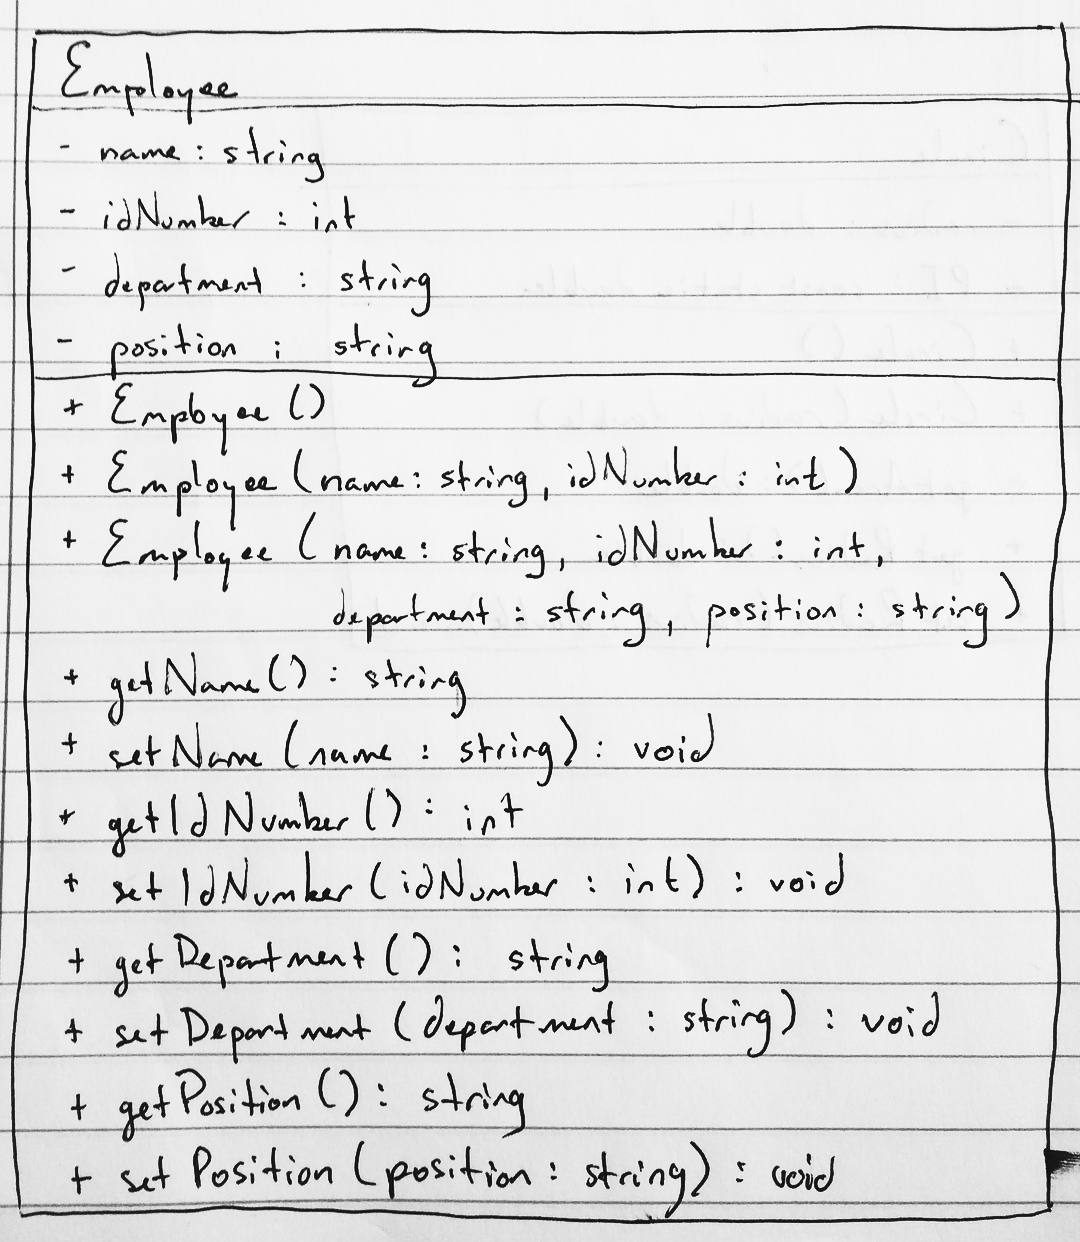 Employee
- name : string
- idNumber : int
- department : string
- position : string
+ Employee ()
+ Employee (name : string, idNumber : int)
+ Employee (name : string, idNumber : int,
department : string, position : string)
+ getName () : string
+ setName (name : string) : void
+ getIdNumber () : int
+ setIdNumber (idNumber : int) : void
+ getDepartment () : string
+ setDepartment (department : string) : void
+ getPosition () : string
+ setPosition (position : string) : void